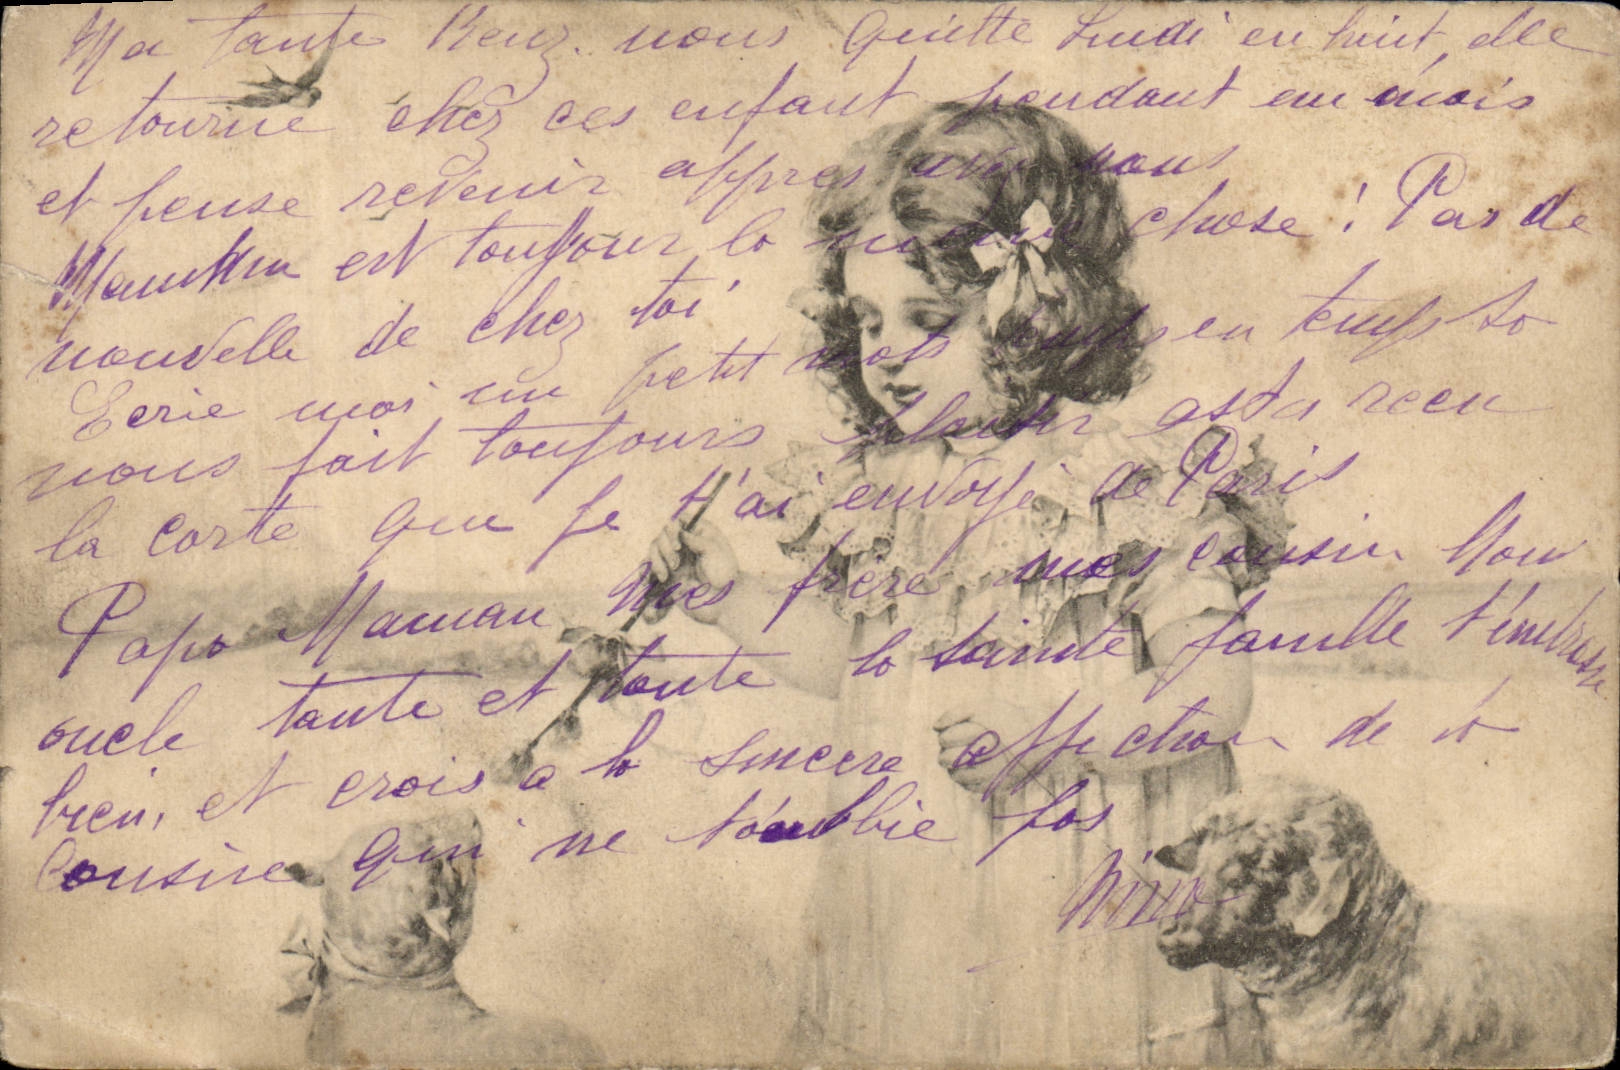 Ma tante Kenz. nous Quitte Lundi en huit, elle
retourne chez ces enfant pendant un mois
et pense revenir appres avec nous
Mamttin est toujour la meme chose ! Pas de
nouvelle de chez toi
Ecrie moi un petit mots temps en temps sa
nous fait toujours plaisir asta recu
la carte que je t'ai envoyé de Paris
Papa Maman mes frère mes cousin Mon
oncle tante et toute la sainte famille t'embrasse
bien, et crois a la sincere affection de ta
Cousine qui ne t'oublie pas
Nina